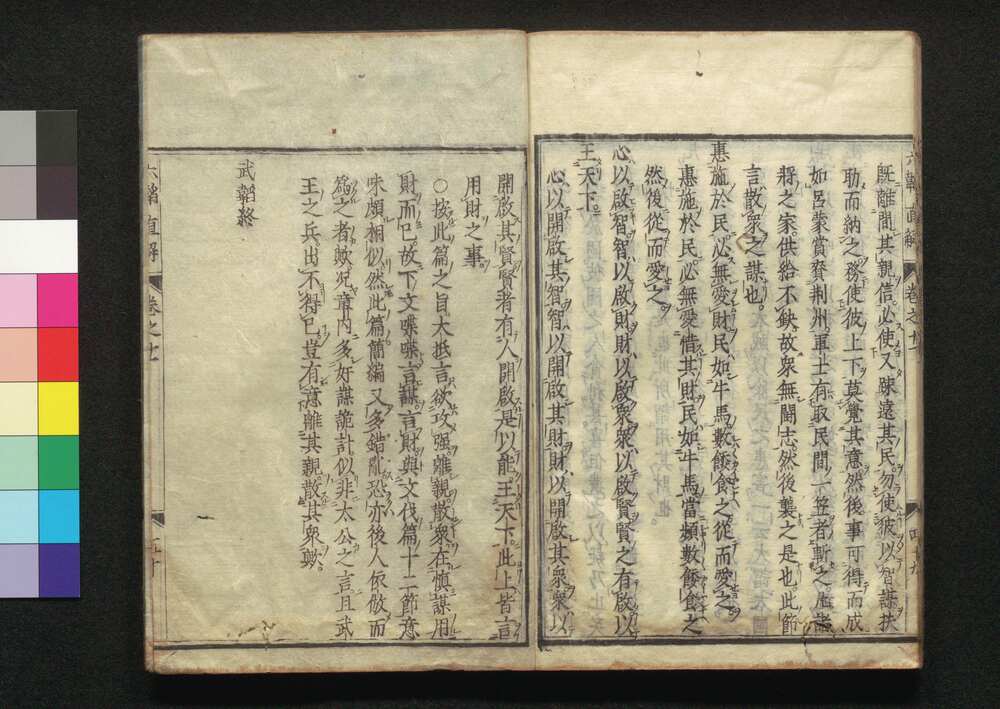 既離間其親信必使又疎遠其民勿使彼以智謀扶
助而納之務使彼上下莫覺其意然後事可得而成
如呂蒙賞發荆州軍士有取民間一笠者斬之屈諸
將之家供給不缺故衆無鬪志然後襲之是也此節
言散衆之謀也
惠施於民必無愛財民如牛馬數餧食之從而愛之
惠施於民必無愛惜其財民如牛馬當頻數餧食之
然後從而愛之
心以啟智智以啟財財以啟衆衆以啟賢賢之有啟以
王天下
心以開啟其智智以開啟其財財以開啟其衆衆以
六韜直解
卷之廿
開啟其賢賢者有人開啟是以能王天下此上皆言
用財之事
○按此篇之旨大抵言欲攻强離親散衆在慎謀用
財而已故下文喋喋言謀言財與文伐篇十二節意
味頗相似然此篇簡編又多錯亂恐亦後人依倣而
爲之者歟況章內多好謀詭計似非太公之言且武
王之兵出不得已豈有意離其親散其衆歟
武韜終
六韜直解
卷之廿
五十